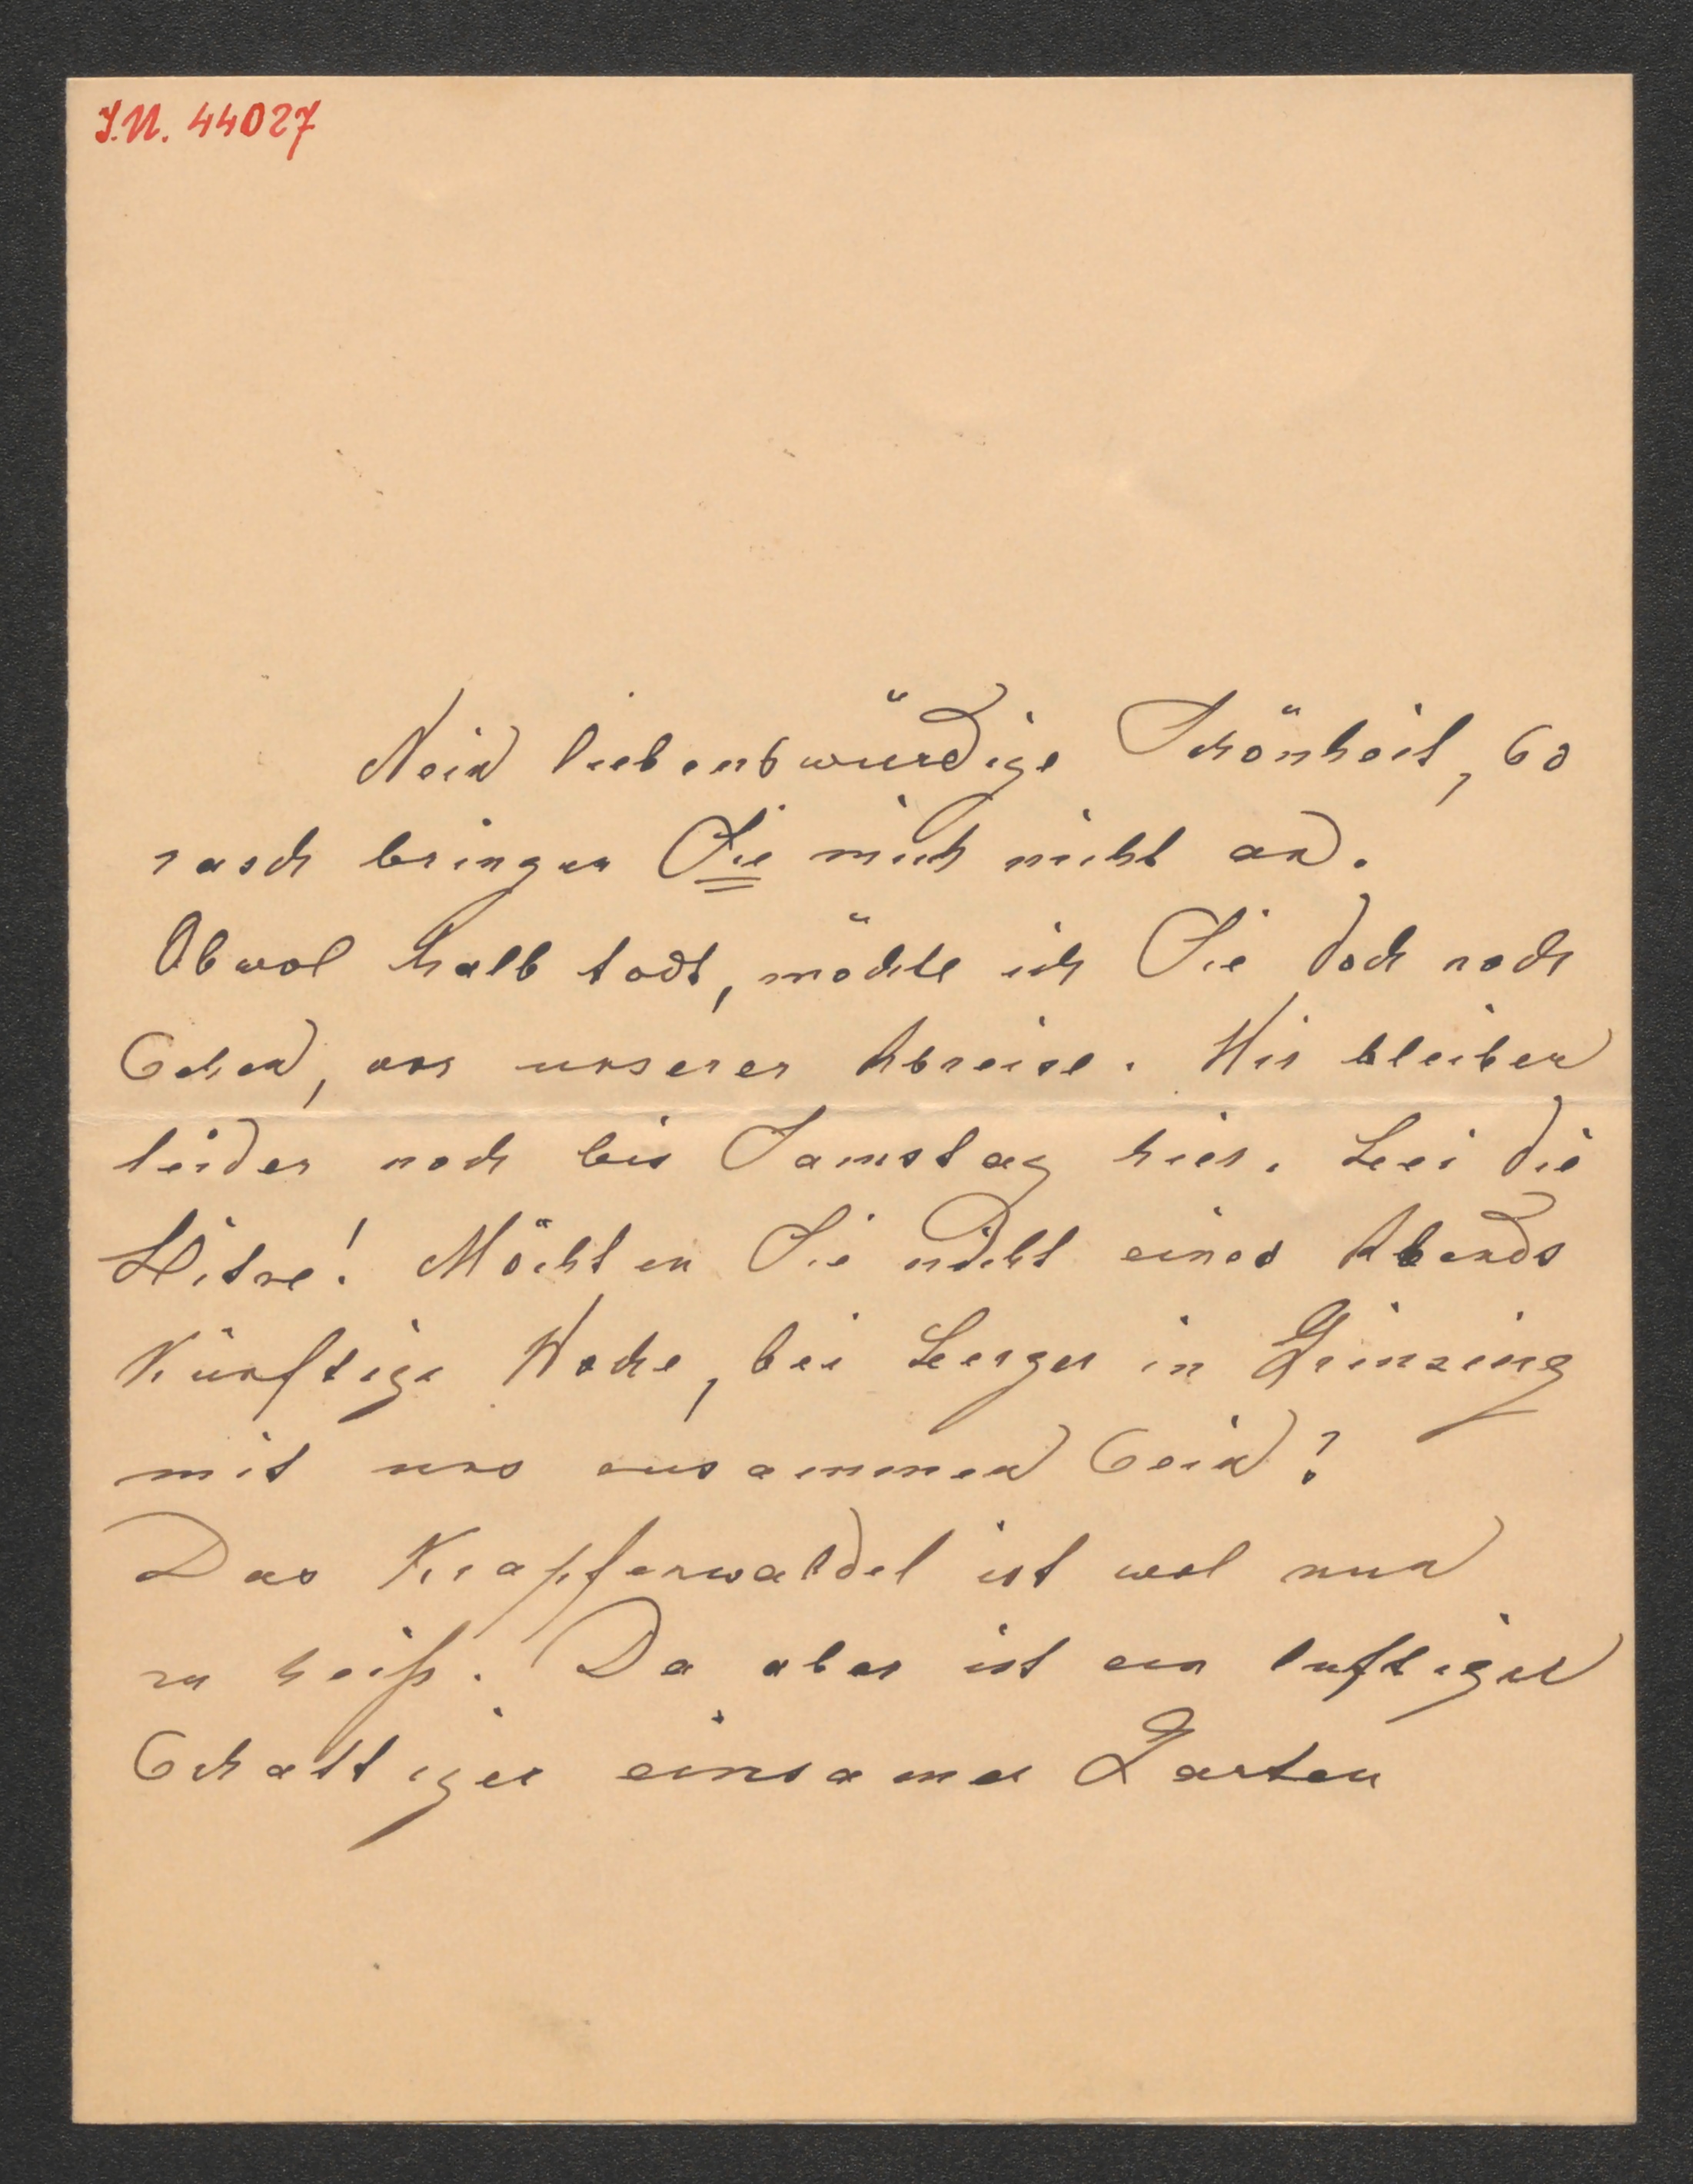 I.N. 44027
Nein liebenswürdige Schönheit, so
rasch bringen Sie mich nicht an.
Obwol halb todt, möchte ich Sie doch noch
sehen, vor unserer Abreise. Wir bleiben
leider noch bis Samstag hier. bei die
Hitze! Möchten Sie nicht eines Abends
künftige Woche, bei Berger in Grinzing
mit uns zusammen sein?
Das Krapfenwaldel ist wol nun
zu heiß. Da aber ist ein luftiger
schattiger einsamer Garten